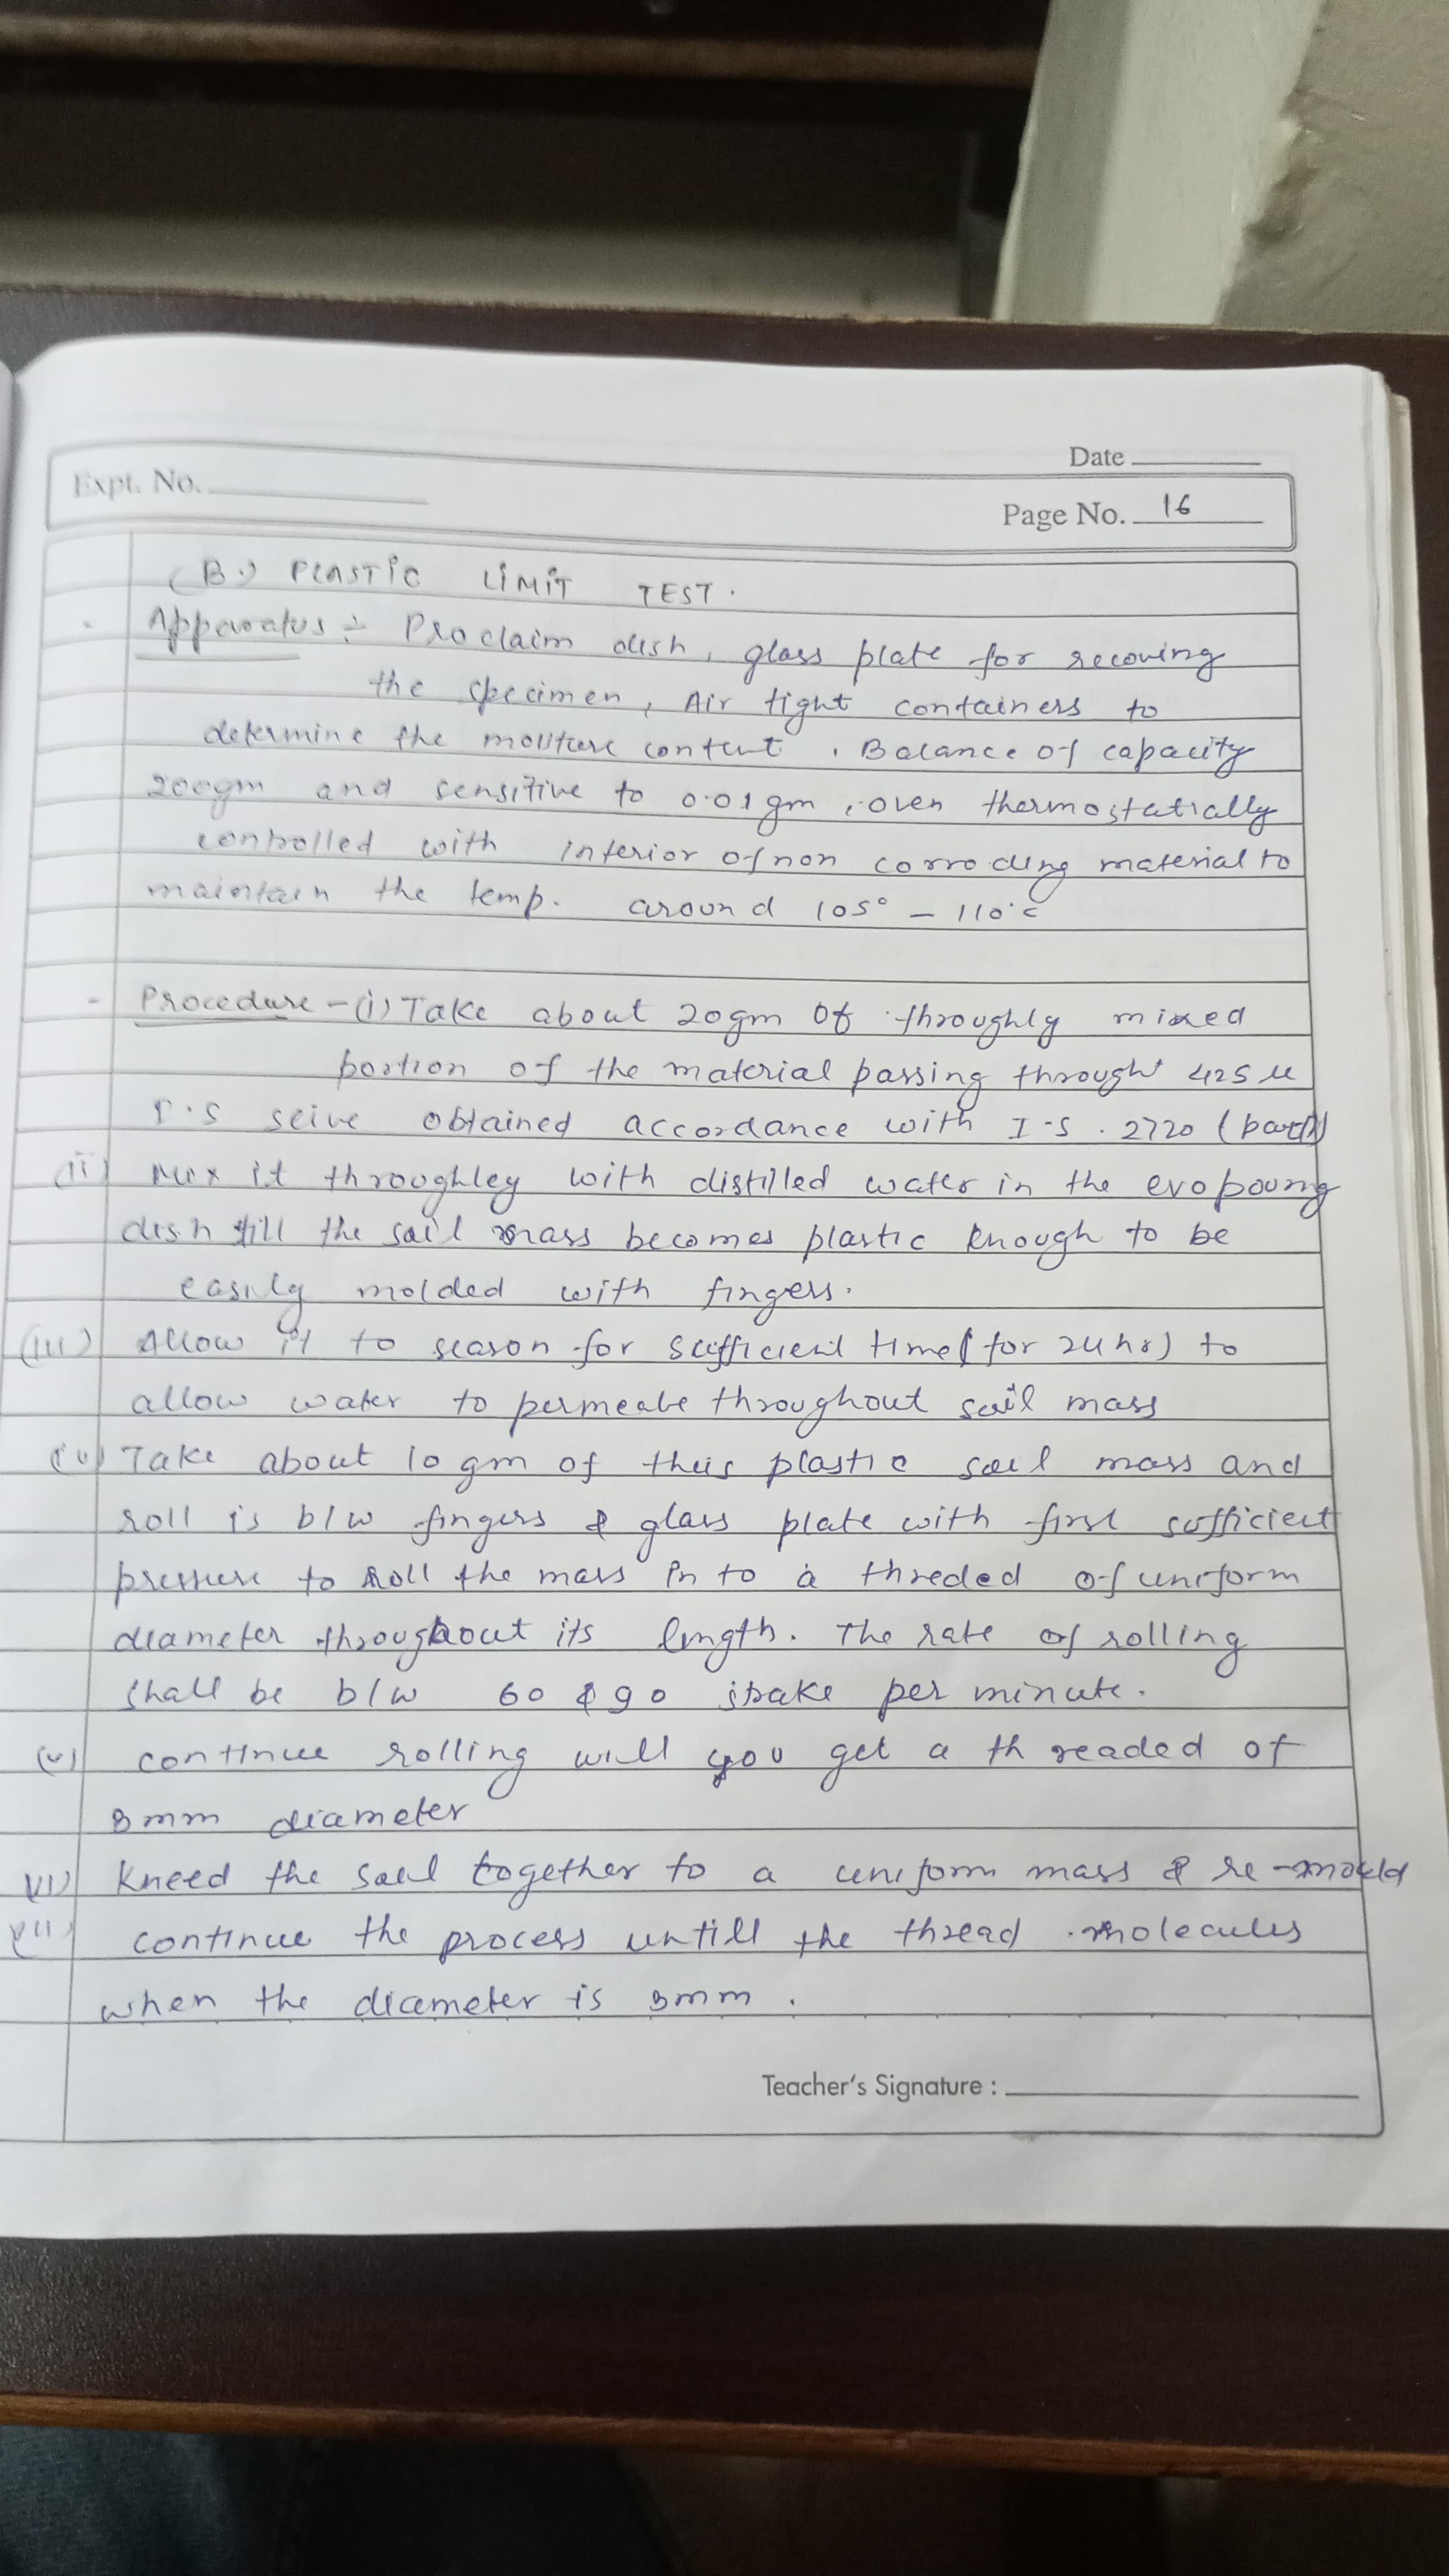 Date
Expt. No.
Page No. 16
(B.) PLASTIC LIMIT TEST.
Apparatus :- Proclaim dish, glass plate for recoving
the specimen, Air tight containers to
determine the moliture content , Balance of capacity
200gm and sensitive to 0.01gm , oven thermostatially
controlled with interior of non corroding material to
maintain the temp. around 105° - 110°c
- Procedure - (i) Take about 20gm of throughly mixed
portion of the material passing through 425 u
I.S seive obtained accordance with I.S. 2720 (part 1)
(ii) Mix it throughley with distilled water in the
dish till the soil mass becomes plastic enough to be
easily molded with fingers.
(iii) Allow it to season for sufficient time (for 24hr) to
allow water to permeate throughout soil mass
(iv) Take about 10 gm of this plastic soil mass and
roll is b/w fingers & glass plate with first sufficient
pressure to Roll the mass in to a threded of uniform
diameter throughout its length. The rate of rolling
shall be b/w 60 & 90 stake per minute.
(v) continue rolling will you get a threaded of
3mm diameter
VI) Kneed the soil together to a uniform mass & re-mould
VII) continue the process untill the thread molecules
when the diameter is 3mm .
Teacher's Signature :